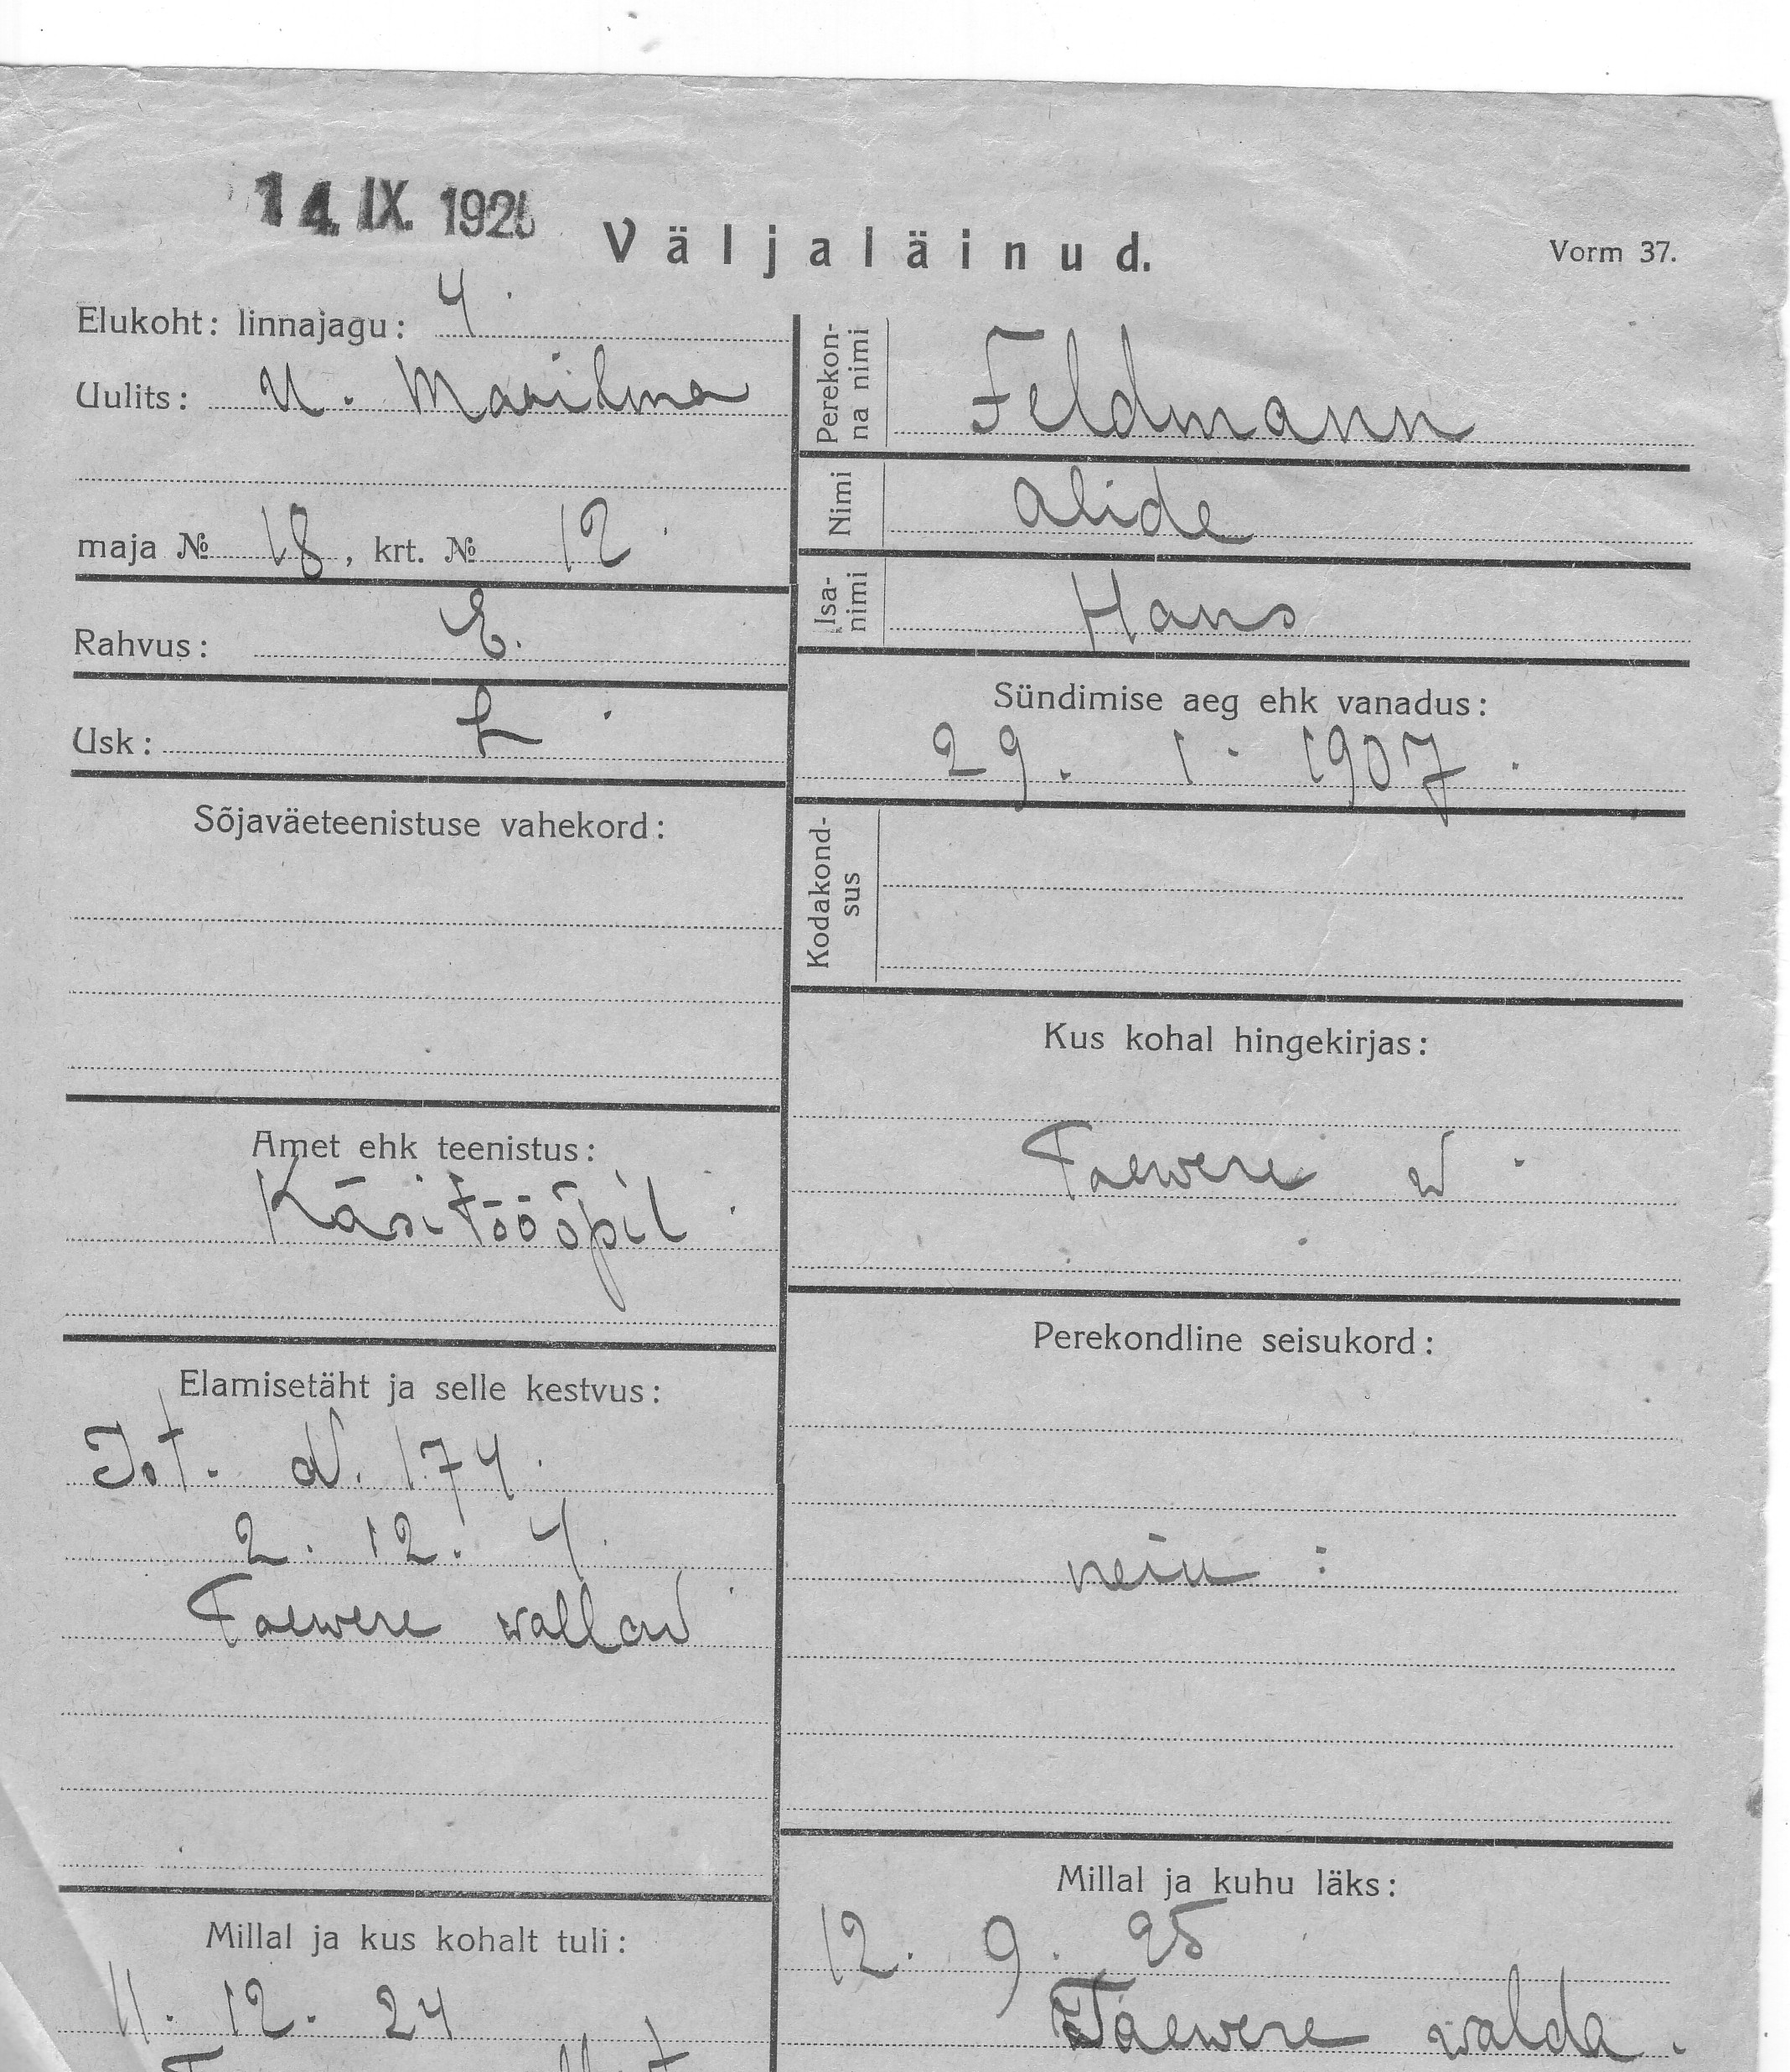 14. IX. 1925
Väljaläinud.
Vorm 37.
Elukoht: linnajagu: 4.
Uulits: U. Maailma
maja № 18, krt. № 12.
Rahvus: E.
Usk: L.
Sõjaväeteenistuse vahekord:
Amet ehk teenistus:
Käsitööõpil.
Elamisetäht ja selle kestvus:
Ist. N. 174.
2. 12. 4.
Taewere wallav.
Millal ja kus kohalt tuli:
11. 12. 24
Perekon-
na nimi
Feldmann
Nimi
Alide
Isa-
nimi
Hans
Sündimise aeg ehk vanadus:
29. 1. 1907.
Kodakond-
sus
Kus kohal hingekirjas:
Taewere w.
Perekondline seisukord:
neiu:
Millal ja kuhu läks:
12. 9. 25
Taewere walda.